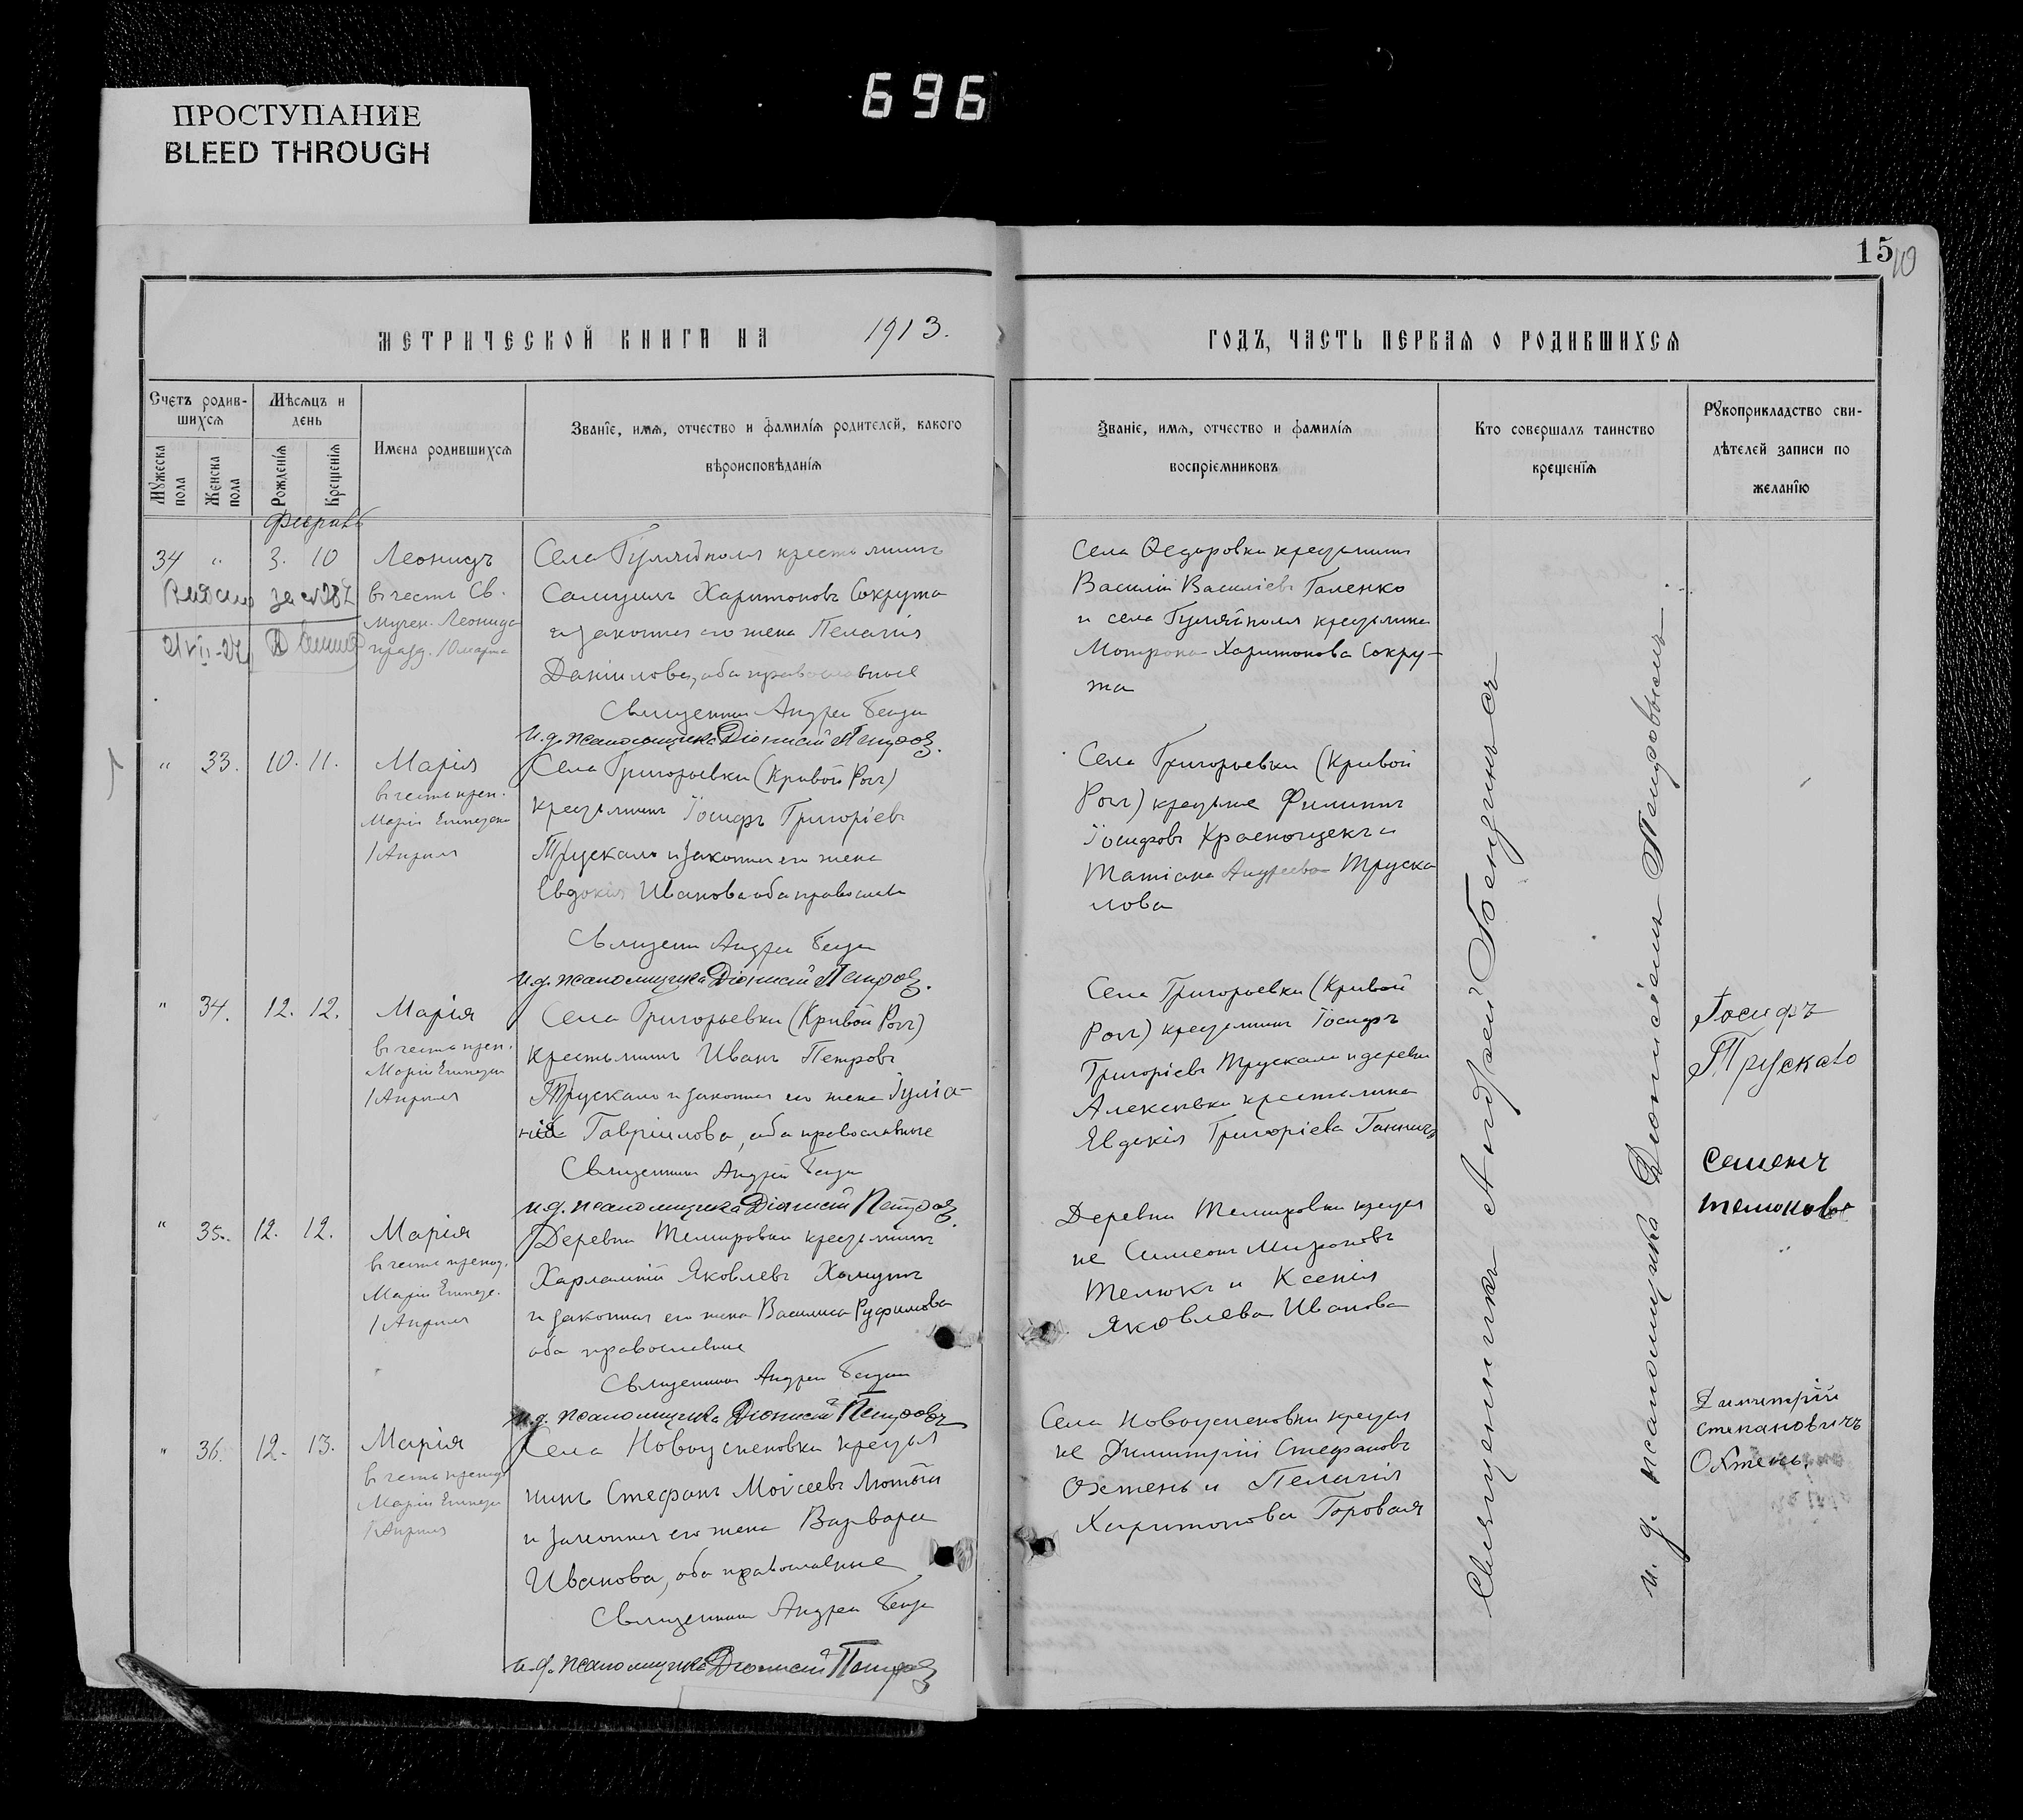 696
ПРОСТУПАНИЕ
BLEED THROUGH
15
10
МЕТРИЧЕСКОЙ КНИГИ НА 1913.
ГОДЪ, ЧАСТЬ ПЕРВАЯ О РОДИВШИХСЯ
Счетъ родив-
шихся
Мужеска пола
Женска пола
Мѣсяцъ и
день
Рожденія
Крещенія
Имена родившихся
Званіе, имя, отчество и фамилія родителей, какого
вѣроисповѣданія
Званіе, имя, отчество и фамилія
воспріемниковъ
Кто совершалъ таинство
крещенія
Рукоприкладство сви-
дѣтелей записи по
желанію
34 " 3. 10
Леонидъ
въ честь Св.
мучен. Леонида
празд. 10 марта
Села Гуляйполя крестьянинъ
Самуилъ Харитоновъ Сокрута
и законная его жена Пелагія
Даніилова, оба православные
Священникъ Андрей
и.д. псаломщика Діонисій Петровъ.
Села Ѳедоровки крестьянинъ
Василій Василіевъ Галенко
и села Гуляйполя крестьянка
Матрона Харитонова Сокру-
та
" 33. 10. 11.
Марія
въ честь преп.
Маріи Египетск
1 Апреля
Села Григорьевки (Кривой Рогъ)
крестьянинъ Іосифъ Григоріевъ
Трускало и законная его жена
Евдокія Иванова оба православ
Священ Андрей
и.д. псаломщика Діонисій Петровъ.
Села Григорьевки (Кривой
Рогъ) крестьяне Филиппъ
Іосифовъ Краснощекъ и
Татіана Андреева Труска
лова
" 34. 12. 12.
Марія
въ честь преп.
Маріи Египетск
1 Апреля
Села Григорьевки (Кривой Рогъ)
крестьянинъ Иванъ Петровъ
Трускало и законная его жена Іуліа-
нія Гавріилова, оба православные
Священникъ Андрей
и.д. псаломщика Діонисій Петровъ.
Села Григорьевки (Кривой
Рогъ) крестьянинъ Іосифъ
Григоріевъ Трускало и деревни
Алексѣевки крестьянка
Евдокія Григоріева
Іосифъ
Трускало
" 35. 12. 12.
Марія
въ честь препод.
Маріи Египет.
1 Апреля
Деревни Темировки крестьянинъ
Харлампій Яковлевъ Хомутъ
и законная его жена Василиса Руфимова
оба православные
Священникъ Андрей
и.д. псаломщика Діонисій Петровъ
Деревни Темировки крестья
не Симеонъ Мироновъ
Телюкъ и Ксенія
Яковлева Иванова
Семенъ
" 36. 12. 13.
Марія
въ честь препод
Маріи Египет
1 Апреля
Села Новоуспеновки крестья
нинъ Стефанъ Моисеевъ Лютый
и законная его жена Варвара
Иванова, оба православные
Священникъ Андрей
и.д. псаломщика Діонисій Петровъ
Села Новоуспеновки крестья
не Димитрій Стефановъ
Охтень и Пелагія
Харитонова Горовая
Димитрій
Степановичъ
Охтень.
Священникъ Андрей
и. д. псаломщика Діонисіемъ Петровымъ